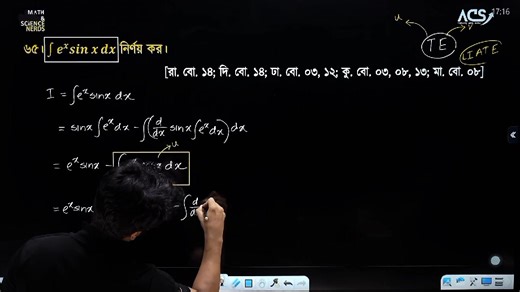 MATH & SCIENCE NERDS
ACS
17:16
u
v
TE
LIATE
৬৫। ∫ eˣ sin x dx নির্ণয় কর।
[রা. বো. ১৪; দি. বো. ১৪; ঢা. বো. ০৩, ১২; কু. বো. ০৩, ০৮, ১৩; মা. বো. ০৮]
I = ∫eˣ sinx dx
= sinx ∫eˣ dx - ∫(d/dx sinx ∫eˣ dx) dx
u
= eˣ sinx - ∫ dx
= eˣ sinx - ∫ d